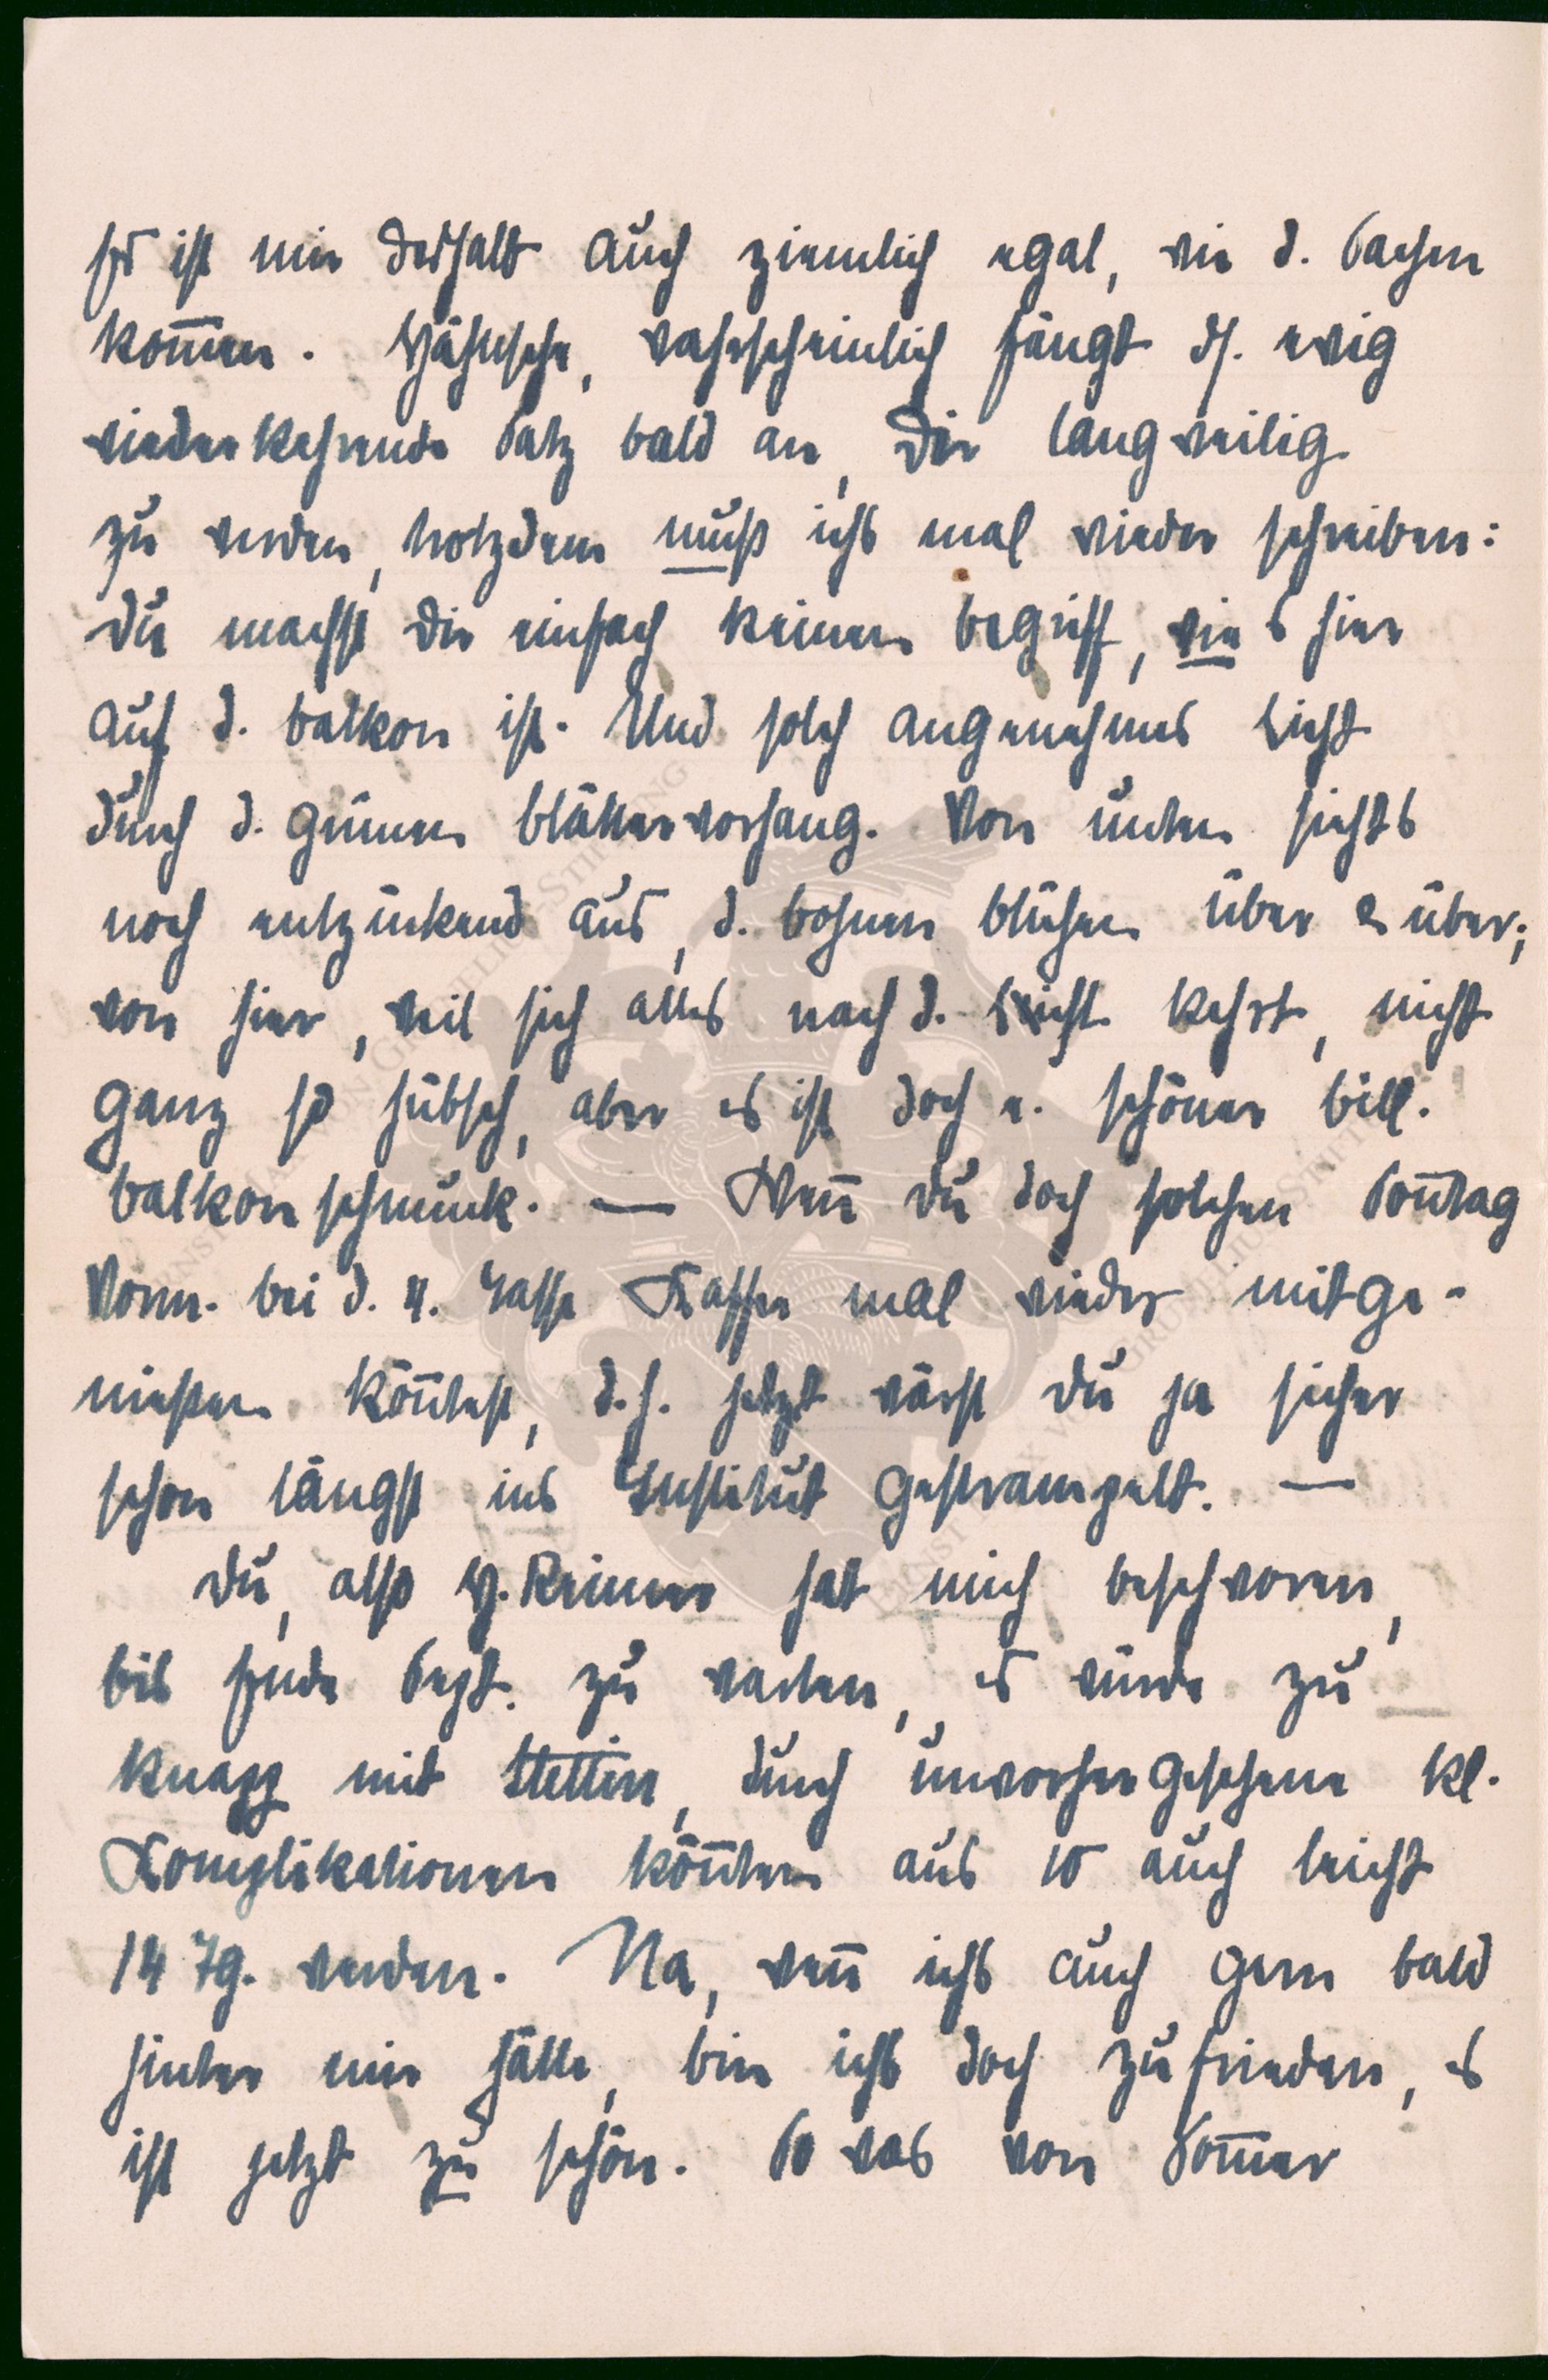 Es ist mir deshalb auch ziemlich egal, wie d. Sachen
kom̅en. Häschen, wahrscheinlich fängt ds. ewig
wiederkehrende Satz bald an, Dir langweilig
zu werden, trotzdem muß ichs mal wieder schreiben:
Du machst Dir einfach keinen Begriff, wie s hier
auf d. Balkon ist. Und solch angenehmes Licht
durch d. grünen Blättervorhang. Von unten siehts
noch entzückend aus, d. Bohnen blühen über & über;
von hier, weil sich alles nach d. Licht kehrt, nicht
ganz so hübsch, aber es ist doch e. schöner bill.
Balkonschmuck. — Wen̅ Du doch solchen Son̅tag
Vorm. bei d. 4. Tasse Kaffee mal wieder mitge-
niessen kön̅test, d.h. jetzt wärst Du ja sicher
schon längst ins Institut gestrampelt. —
Du, also H. Reimer hat mich beschworen,
bis Ende Sept. zu warten, es würde zu
knapp mit Stettin, durch unvorhergesehene kl.
Komplikationen kön̅ten aus 10 auch leicht
14 Tg. werden. Na, wen̅ ichs auch gern bald
hinter mir hätte, bin ichs doch zufrieden, es
ist jetzt zu schön. So was von Som̅er